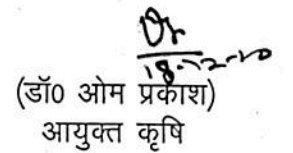 18-12-20
(डॉ0 ओम प्रकाश)
आयुक्त कृषि